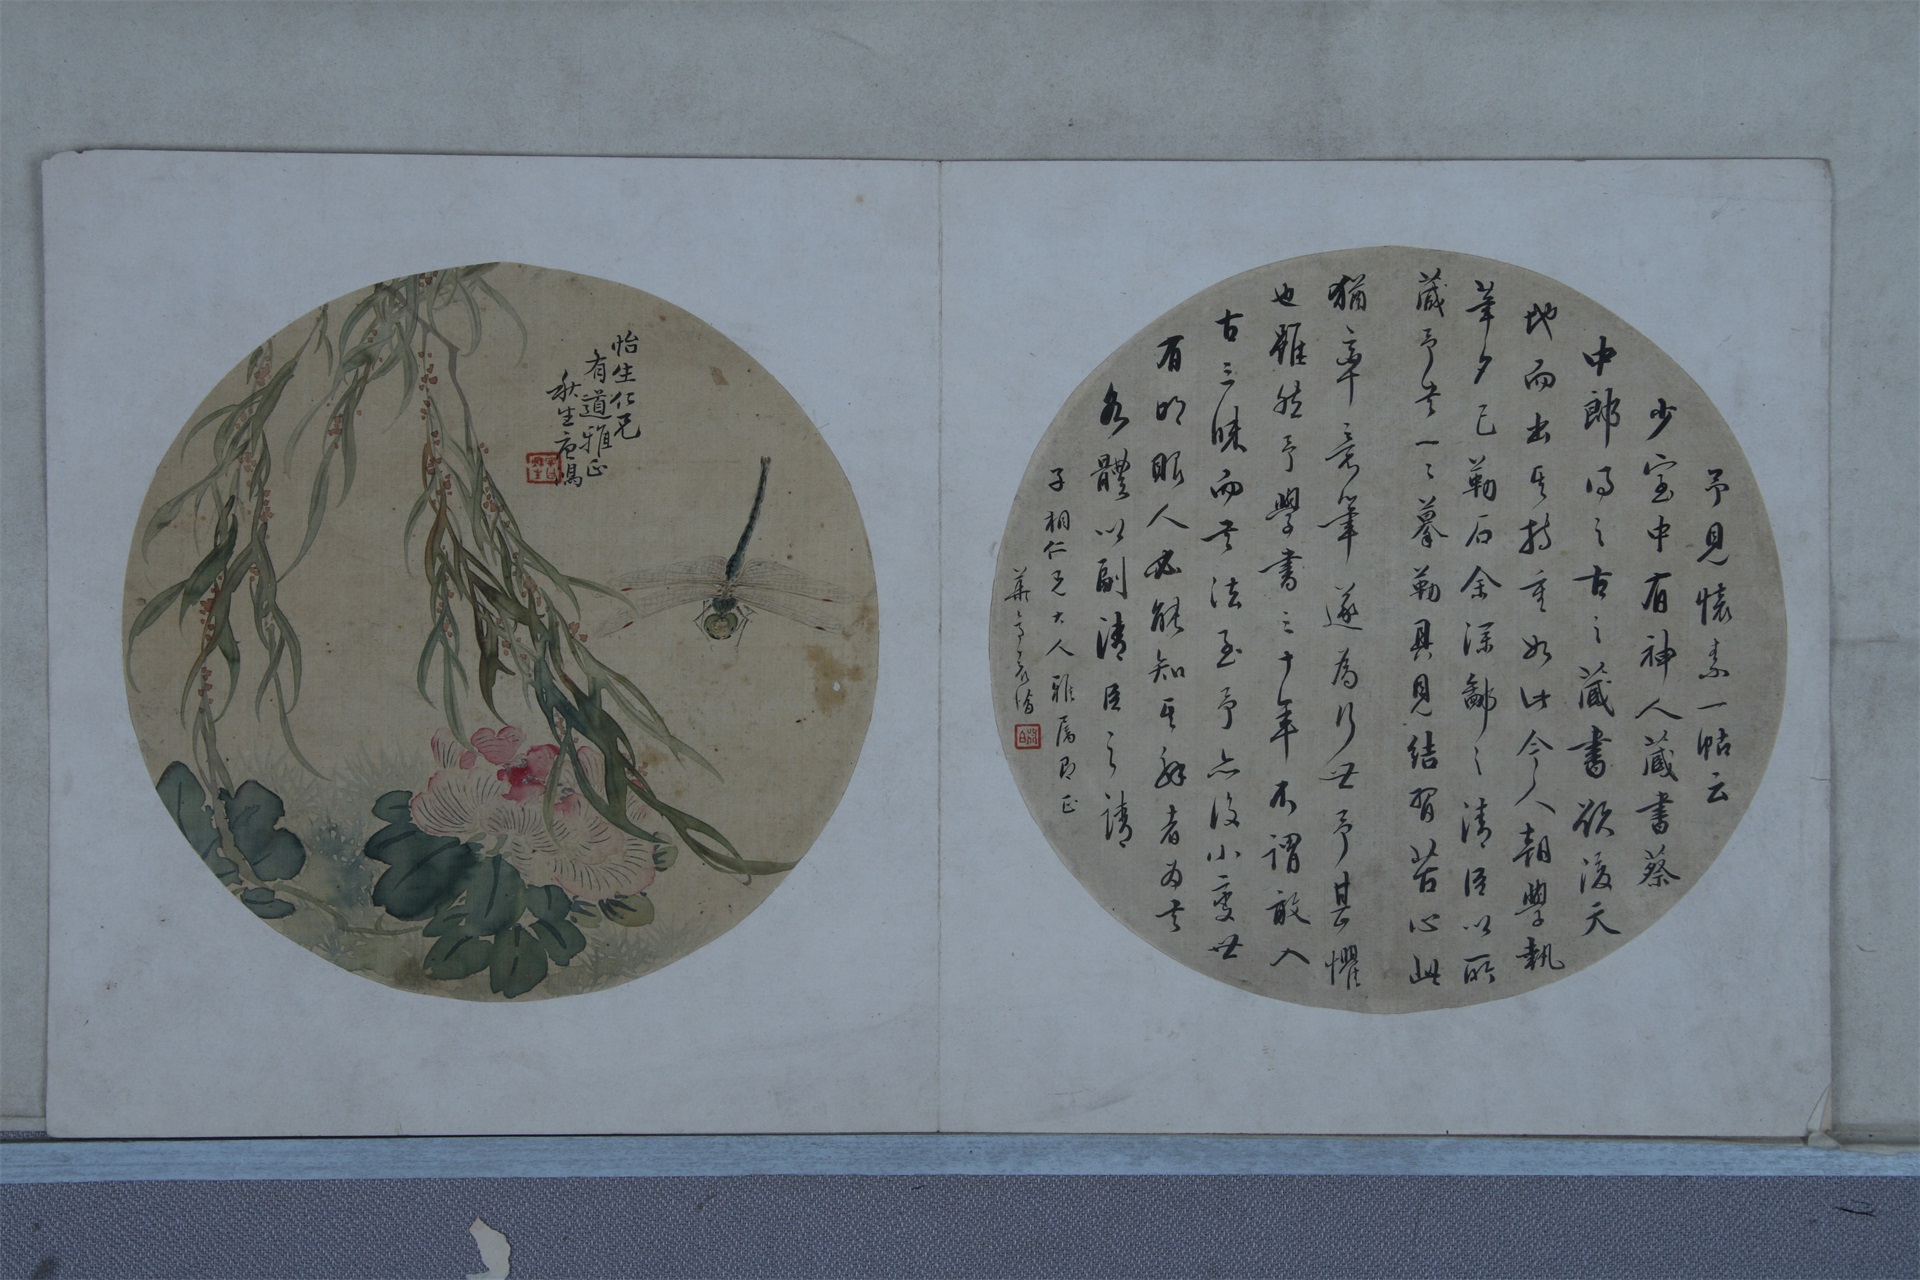 予見懷素一帖云
少室中有神人藏書蔡
中郎得之古之藏書欲後天
地而出其持重如此今人朝學執
筆夕已勒石余深鄙之清臣以所
藏予書一一摹勒具見結習苦心此
猶章意筆遂為行世予甚懼
也雖然予學書三十年不謂敢入
古三昧而書法至予亦復小變世
有明眼人必能知其解者為書
各體以副清臣之請
子相仁兄大人雅属即正
怡生仁兄
有道雅正
秋生